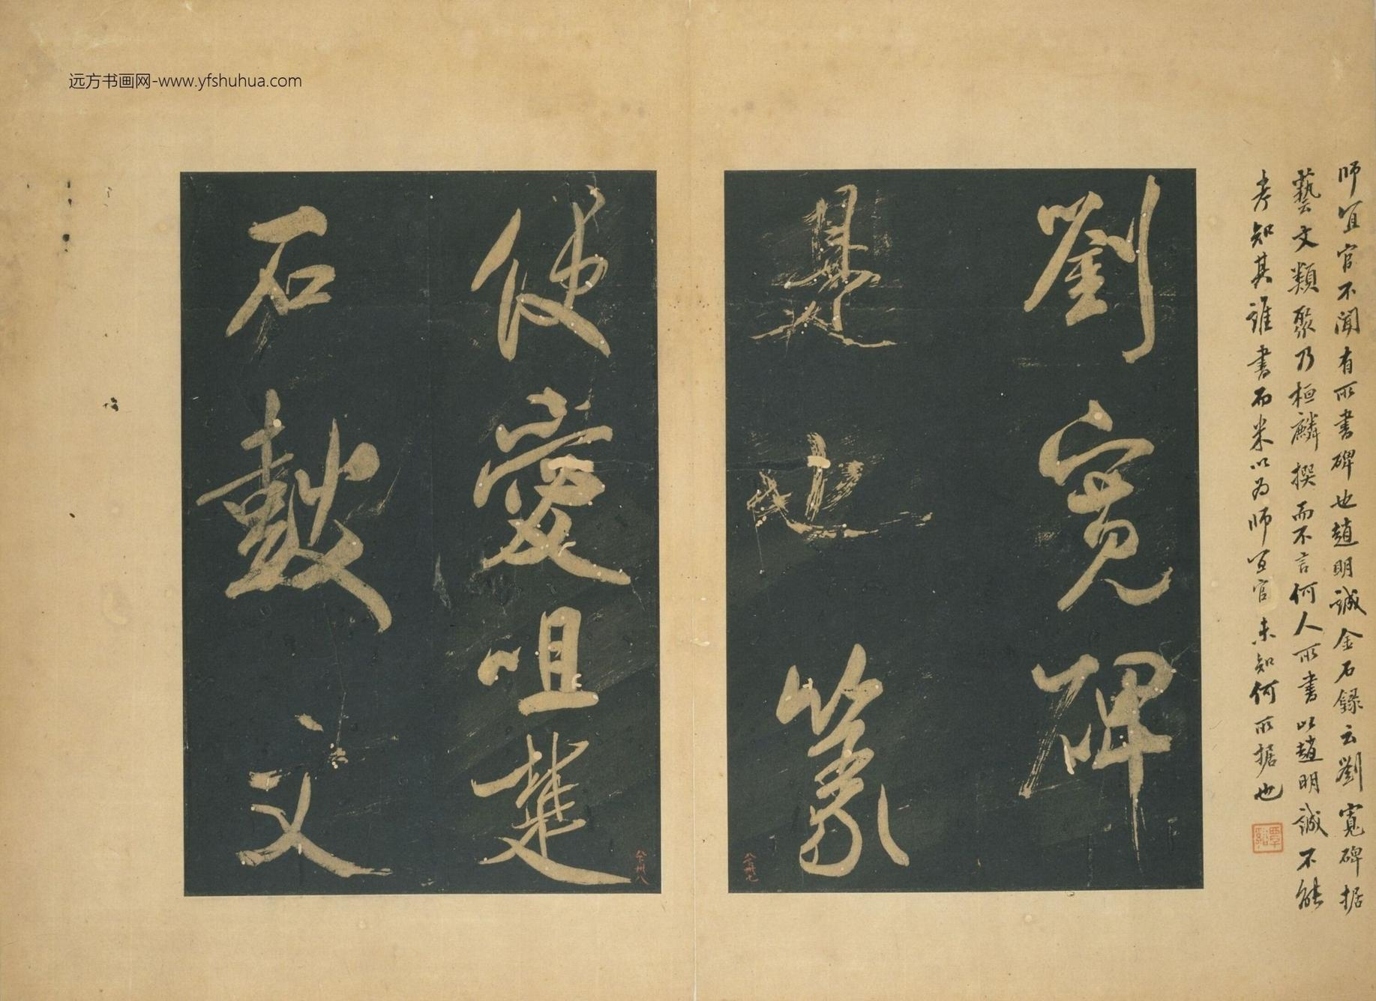 远方书画网-www.yfshuhua.com
師宜官不聞有所書碑也趙明誠金石録云劉寬碑据
藝文類聚乃桓麟撰而不言何人所書以趙明誠不能
考知其誰書而米以為師宜官未知何所据也
劉寬碑
是也篆
便愛咀楚
石鼓文